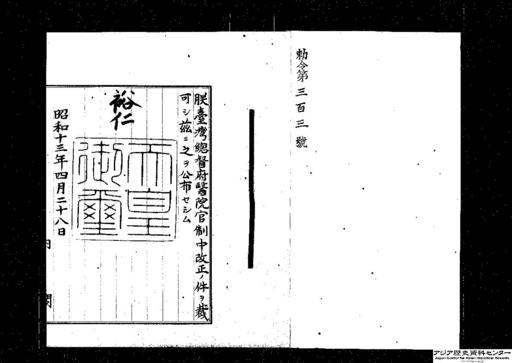 勅令第三百三號
朕臺灣總督府醫院官制中改正ノ件ヲ裁
可シ茲ニ之ヲ公布セシム
裕仁
天皇御璽
昭和十三年四月二十八日
内閣
アジア歴史資料センター
Japan Center for Asian Historical Records